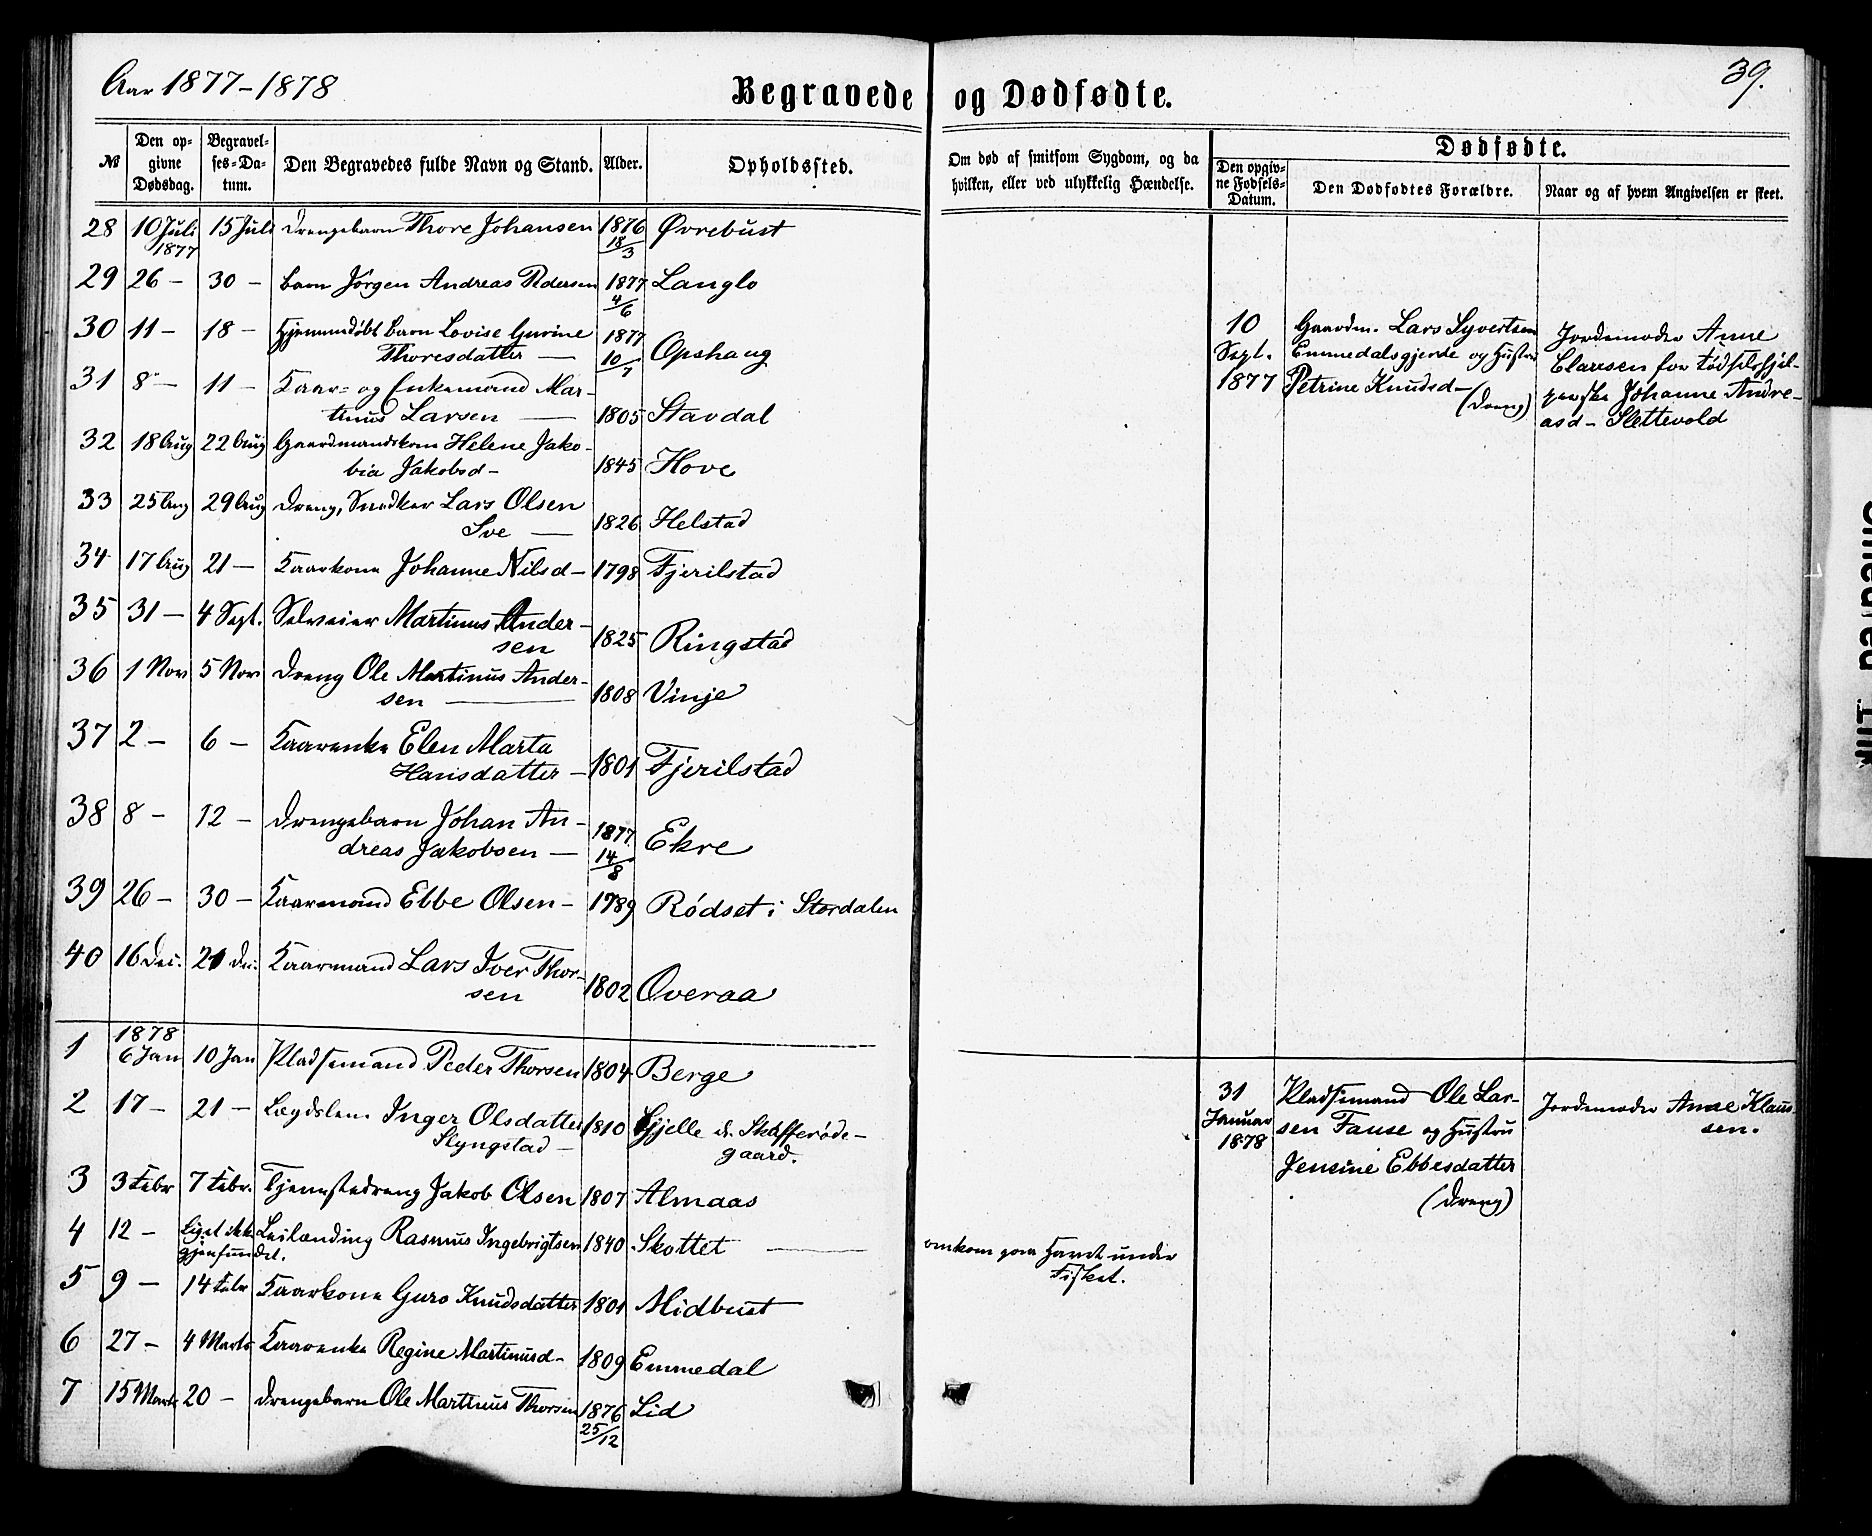 Aar 1877-1878
Begravede og Dødfødte.
39.
№
Den opgivne Dødsdag.
Begravelses-Datum.
Den Begravedes fulde Navn og Stand.
Alder.
Opholdssted.
Om død af smitsom Sygdom, og da hvilken, eller ved ulykkelig Hændelse.
Dødfødte.
Den opgivne Fødsels-Datum.
Den Dødfødtes Forældre.
Naar og af hvem Angivelsen er skeet.
28 10 Juli 1877 15 Juli Drengebarn Thore Johansen 1876 18/3 Øvrebust
29 26 - 30 - Barn Jørgen Andreas Pedersen 1877 4/6 Langlo
30 11 - 18 - Hjemmedøbt barn Lovise Gurine
Thoresdatter — 1877 10/7 Opshaug
31 8 - 11 - Kaar- og Enkemand Mar-
tinus Larsen — 1805 Stavdal
32 18 Aug 22 Aug Gaardmandskone Helene Jako-
bia Jakobsd- 1845 Hove
33 25 Aug 29 Aug Dreng, Snedker Lars Olsen
Sve — 1826 Helstad
34 17 Aug 21 - Kaarkone Johanne Nilsd- 1798 Fjerilstad
35 31 - 4 Sept. Selveier Martinus Ander-
sen 1825 Ringstad
36 1 Nov 5 Nov Dreng Ole Martinus Ander-
sen — 1808 Vinje
37 2 - 6 - Kaarenke Elen Marta
Hansdatter - 1801 Fjerilstad
38 8 - 12 - Drengebarn Johan An-
dreas Jakobsen — 1877 14/8 Ekre
39 26 - 30 - Kaarmand Ebbe Olsen - 1789 Rødset i Stordalen
40 16 Dec. 21 Dec. Kaarmand Lars Iver Thor-
sen 1802 Overaa
1878
1 6 Jan 10 Jan Pladsemand Peder Thorsen 1804 Berge
2 17 - 21 - Lægdslem Inger Olsdatter
Slyngstad - 1810 Gjelle
gaard.
3 3 Febr 7 Febr. Tjenestedreng Jakob Olsen 1807 Almaas
4 12 - Liget ikke
gjenfundet. Leilænding Rasmus Ingebrigtsen 1840 Skottet — omkom paa Havet under
Fisket.
5 9 - 14 Febr Kaarkone Guro Knudsdatter 1801 Midbust
6 27 - 4 Marts Kaarenke Regine Martinusd- 1809 Emmedal
7 15 Marts 20 - Drengebarn Ole Martinus Thorsen 1876 25/12 Lid
10
Sept.
1877
Gaardm. Lars Syvertsen
Emmedalsgjerde og Hustru
Petrine Knudsd-
(Dreng)
Jordemoder Anne
Clausen for Fødselshjæl-
perske Johanne Andre-
asd- Slettevold
31
Januar
1878
Pladsemand Ole Lar-
sen Fause og Hustru
Jensine Ebbesdatter
(Dreng)
Jordemoder Anne Klaus-
sen.